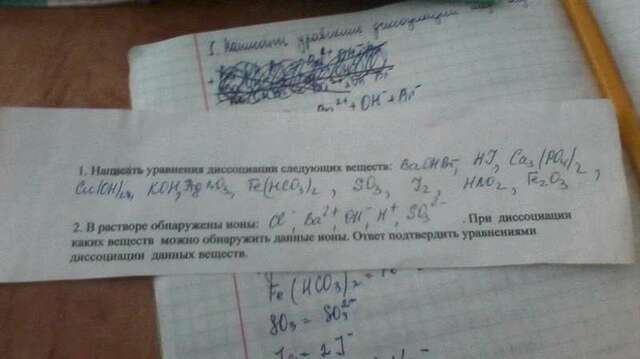 1. Написать уравнения диссоциации
Ba²⁺ + OH⁻ + Br⁻
1. Написать уравнения диссоциации следующих веществ: BaOHBr, HJ, Ca₃(PO₄)₂,
KOH, AgNO₃, Fe(HCO₃)₂, SO₃, J₂, HNO₂, Fe₂O₃
2. В растворе обнаружены ионы: Cl⁻, Ba²⁺, OH⁻, H⁺, SO₃²⁻. При диссоциации
каких веществ можно обнаружить данные ионы. Ответ подтвердить уравнениями
диссоциации данных веществ.
Fe(HCO₃)₂ = Fe
SO₃ = SO₃²⁻
J₂ = 2J⁻